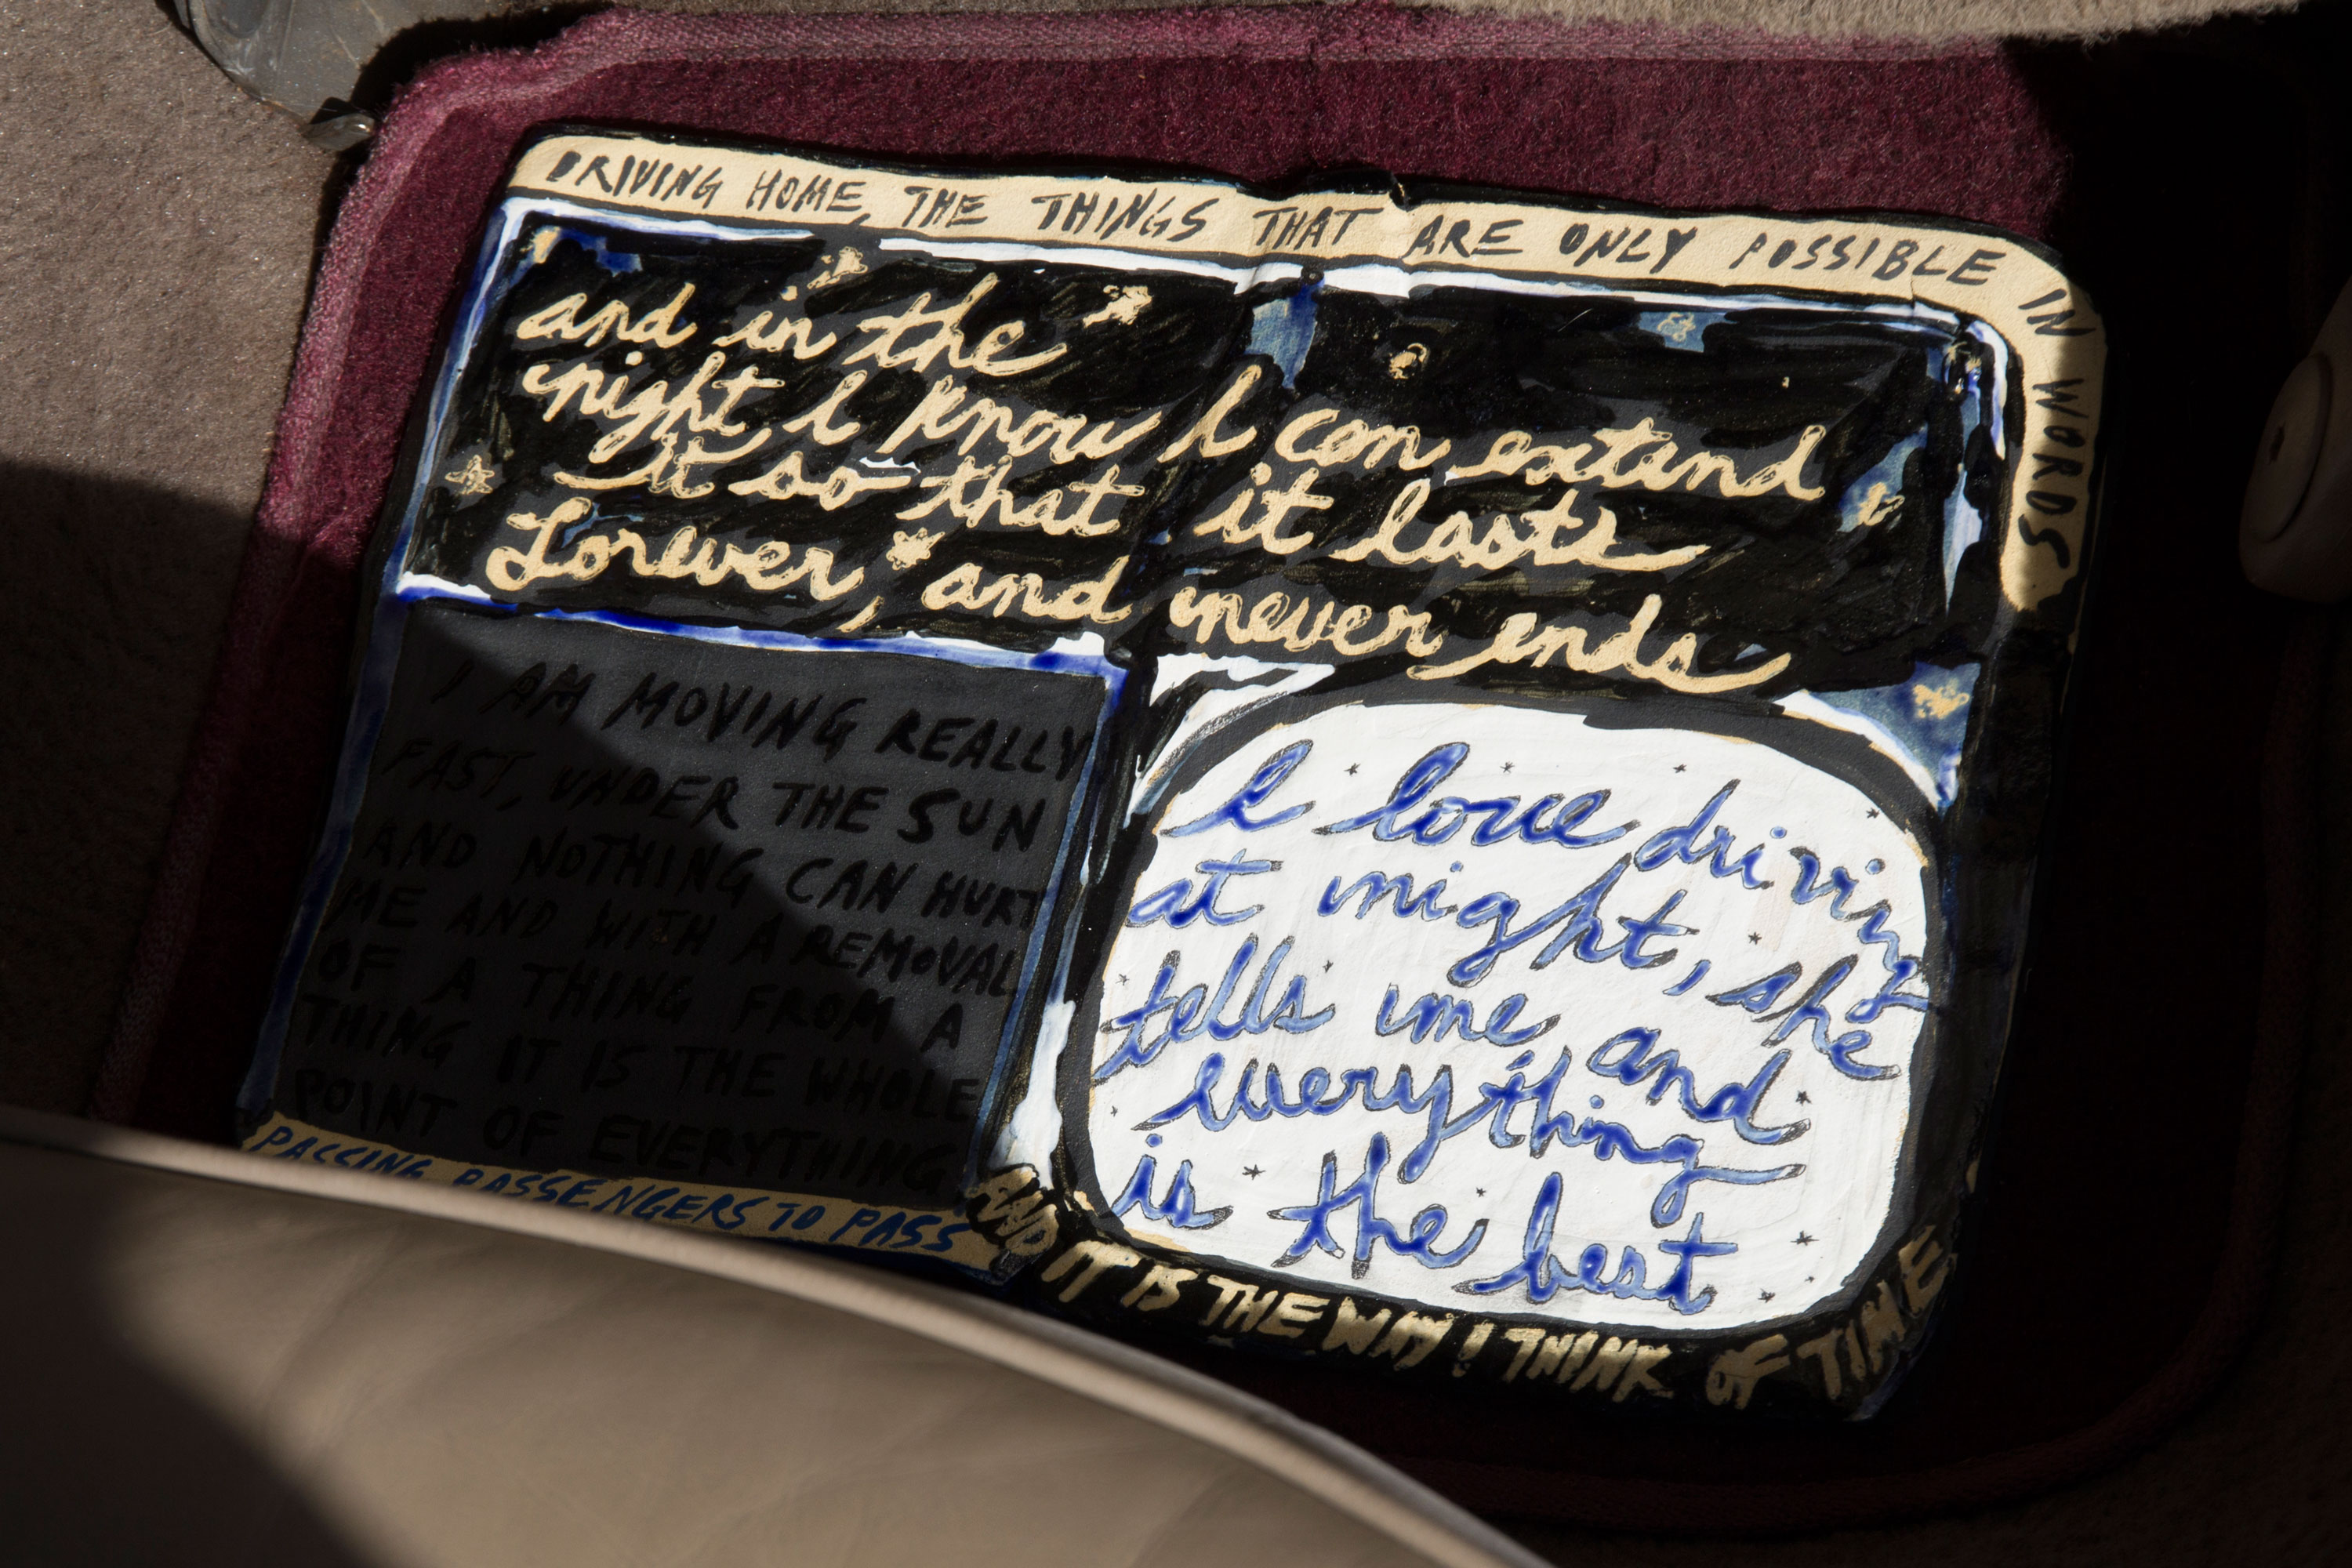 DRIVING HOME, THE THINGS THAT ARE ONLY POSSIBLE IN WORDS
and in the
night I know I can extend
it so that it lasts
Forever, and never ends
I AM MOVING REALLY
FAST, UNDER THE SUN
AND NOTHING CAN HURT
ME AND WITH A REMOVAL
OF A THING FROM A
THING IT IS THE WHOLE
POINT OF EVERYTHING
PASSING PASSENGERS TO PASS
I love driving
at night, she
tells me, and
everything
is the best
AND IT IS THE WAY I THINK OF TIME